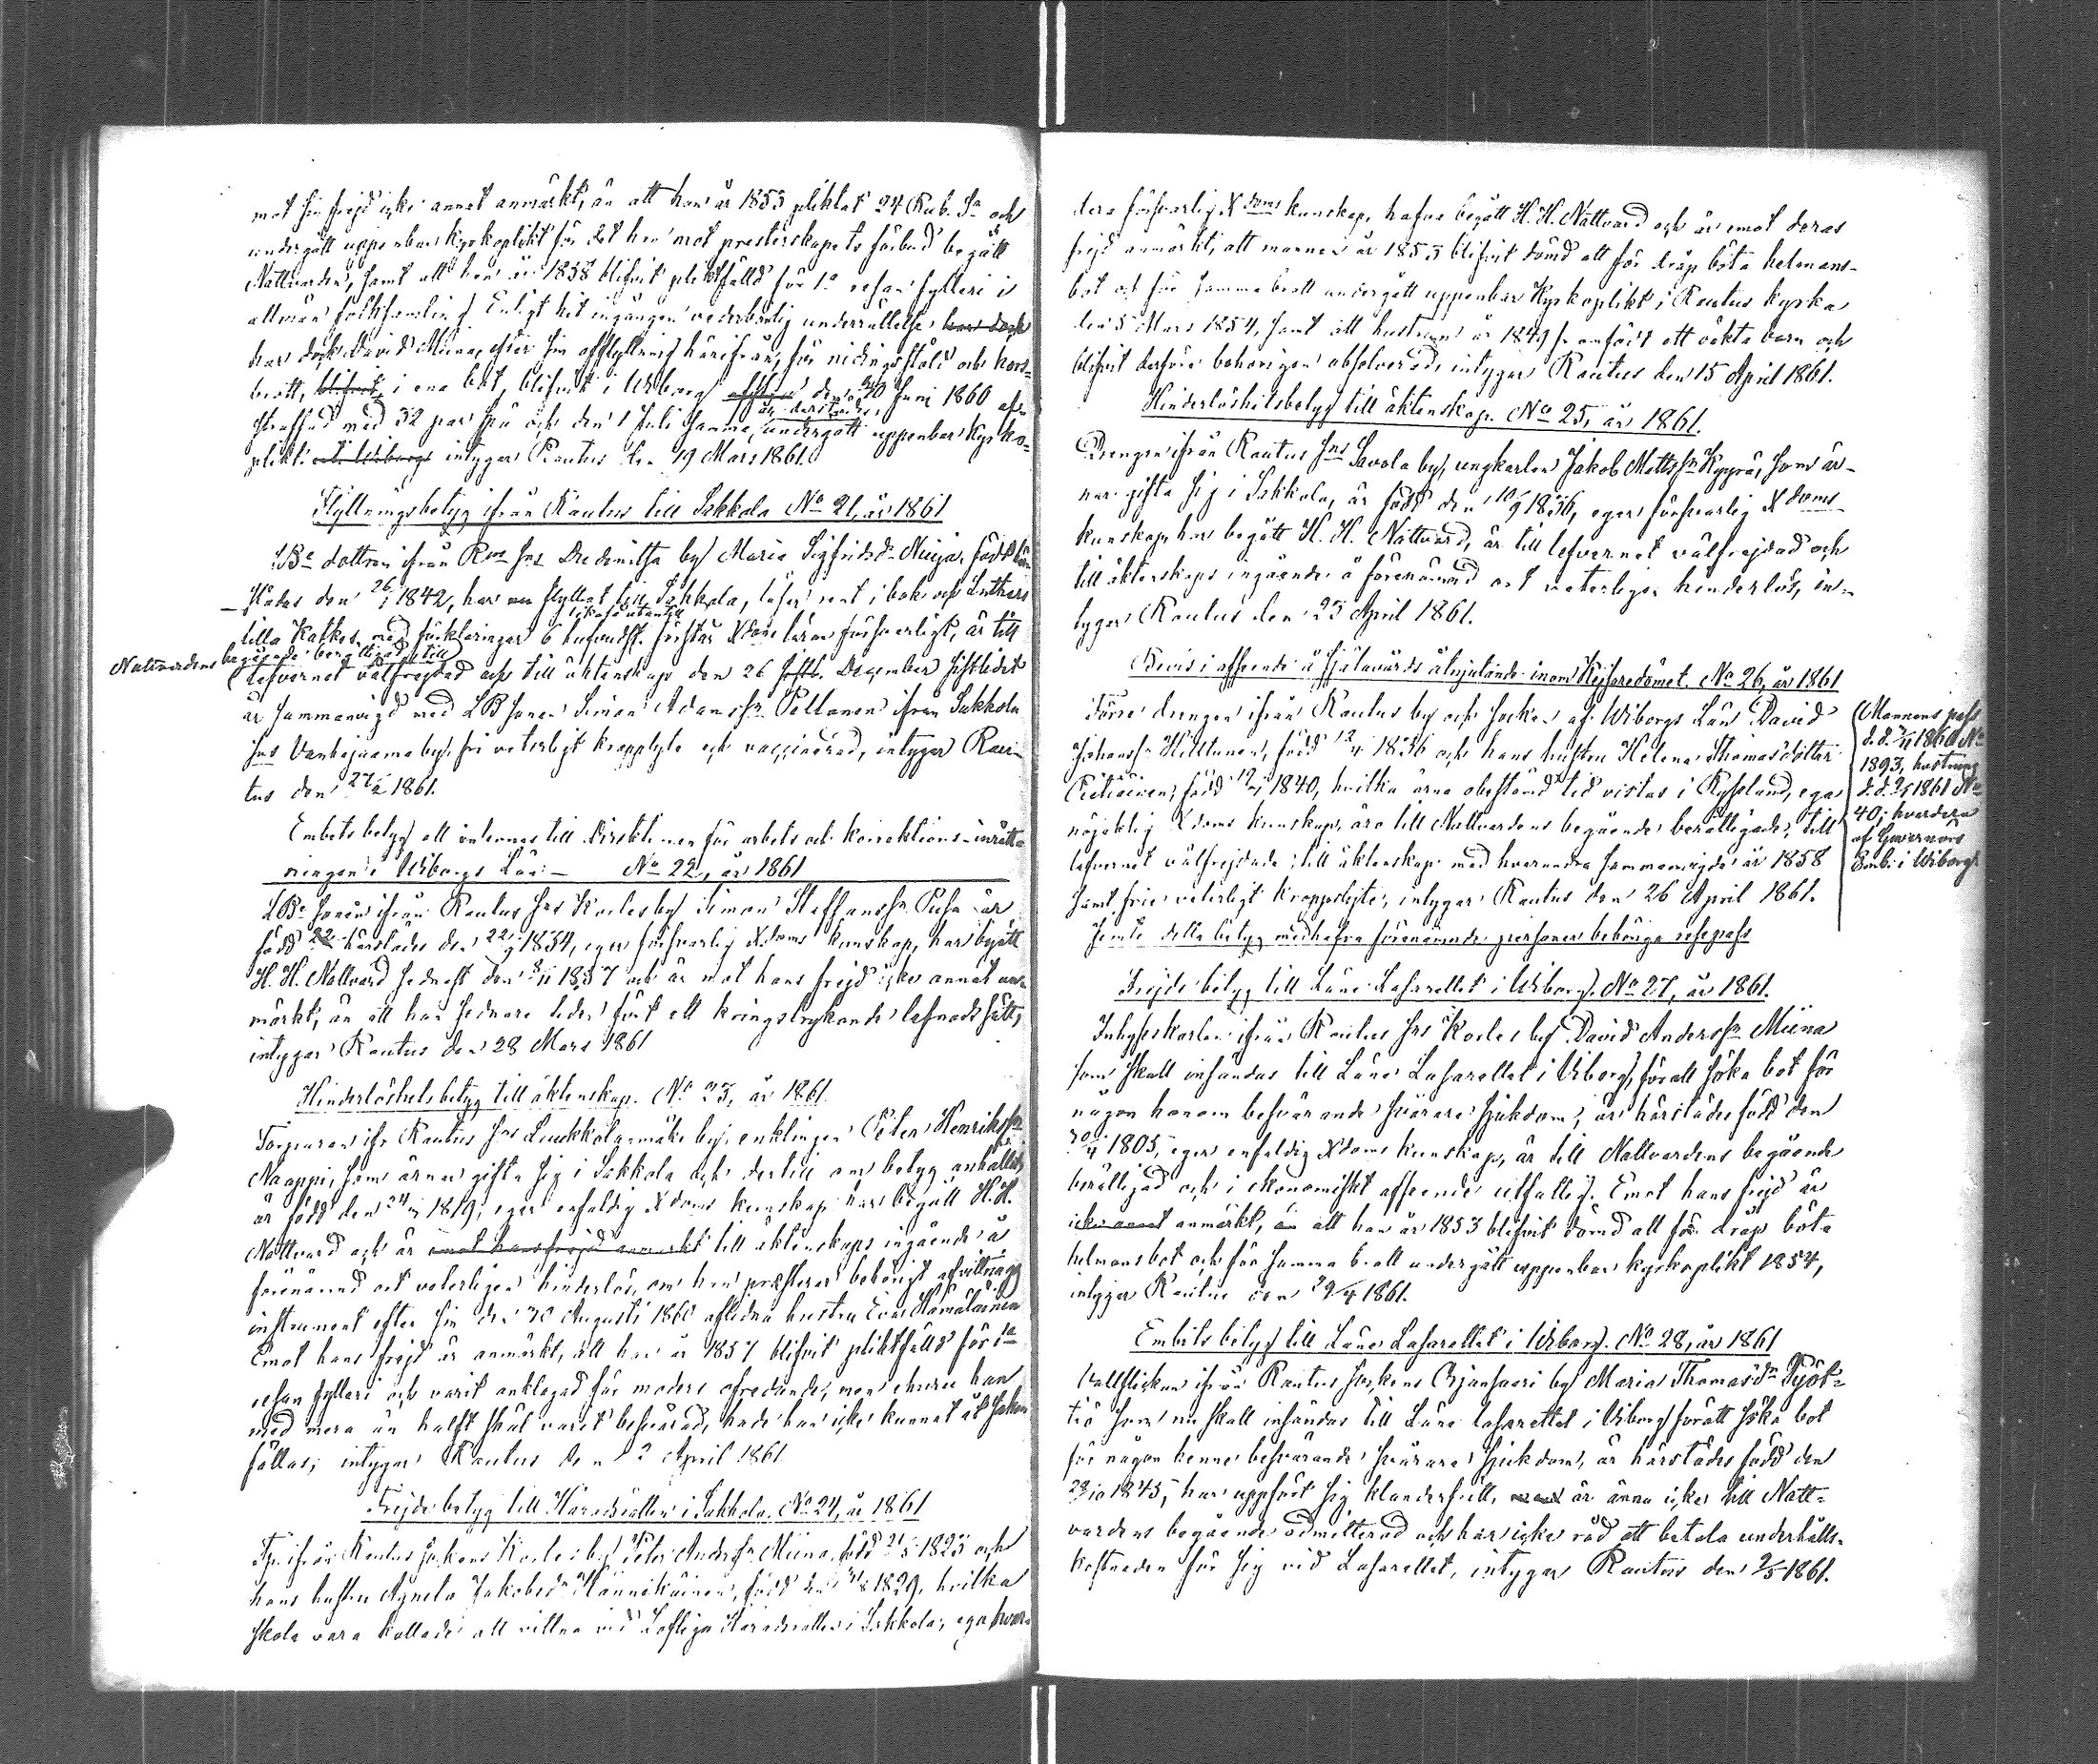 mot sin frejd icke annat anmärkt, än att han år 1853 pliktat 24 Rub. Sr och
undergått uppenbar kyrkoplikt för det han mot presterskapets förbud begått
Nattvarden, samt att han år 1858 blifvit pliktfälld för 1a resan fylleri i
allmän folksamling. Enligt hit ingången vederbörlig underrättelse har dock
har dock David Miina, efter sin afflyttning härifrån, för nidingsstöld och kors-
brott, blifvit i ena bot, blifvit i Wiborg den 30 Juni 1860 af-
straffad med 32 par spö och den 1 Juli samma år derstädes undergått uppenbar kyrko-
plikt. intygar Rautus den 19 Mars 1861.
Flyttningsbetyg ifrån Rautus till Sakkola No 21, år 1861
LBe dottren ifrån Rus Sns by Maria Sigfridsdr född här-
städes den 26/ 1842, har flyttat till Sakkola, läser rent i bok och Luthers
lilla Katkes med förklaringar likaså utantill 6 hufvudst. förstår Xdoms läran försvarligt, är till
Nattvardens begående berättigad till
lefvernet välfrejdad och till äktenskap den 26 December sistlidet
år sammanvigd med LBsonen Simon Adamssn Pellonen ifrån Sakkola
Sns Vanhajaama by, fri veterligt kropplyte och vaccinerad, intygar Rau-
tus den 27/2 1861.
Embetsbetyg att inlemnas till Direktionen för arbets och korrektions-inrätt-
ningen i Wiborgs Län. — No 22, år 1861
LBe sonen ifrån Rautus Sns Korlesby Simon Staffanssn Puha är
född 22 härstädes den 22/9 1834, eger försvarlig Xdoms kunskap, har begått
H. H. Nattvard sednast den 8/11 1857 och är mot hans frejd icke annat an-
märkt, än att han sednare tiden fört ett kringstrykande lefnadssätt,
intygar Rautus den 28 Mars 1861
Hinderlöshetsbetyg till äktenskap. No 23, år 1861.
Torparen ifr. Rautus Sns Luukkolanmäki by, enklingen Peter Henrikssn
Naappi, som ärnar gifta sig i Sakkola och dertill om betyg anhållit,
är född den 24/ 1819, eger enfaldig Xdoms kunskap har begått H. H.
Nattvard och är emot hans frejd anmärkt till äktenskaps ingående å
förenämnd ort veterligen hinderlös, om han presterar behörigt afvittrings
instrument efter sin den 30 Augusti 1860 aflidna hustru Eva Hämäläinen
Emot hans frejd är anmärkt, att han år 1857 blifvit pliktfälld för 1a
resan fylleri och varit anklagad för moders ofredande, men churu han
med mera än halft skäl varit besvärad, hade han icke kunnat åt saken
fällas; intygar Rautus den 2 April 1861
Frejdebetyg till Häradsrätten i Sakkola. No 24, år 1861
Tp. ifrån Rautus sockens Korlesby Peter Anderssn Miina, född 21/5 1825 och
hans hustru Agneta Jakobsdr Hännikäinen, född den 1829, hvilka
skola vara kallade att vittna vid Lofliga Häradsrätten i Sakkola, ega hvar-
dera försvarlig Xdoms kunskap, hafva begått H. H. Nattvard och är emot deras
frejd anmärkt, att mannen år 1853 blifvit dömd att för dråp böta helmans-
bot och för samma brott undergått uppenbar kyrkoplikt i Rautus kyrka
den 5 Mars 1854, samt att hustrun år 1849 framfödt ett oäkta barn och
blifvit derföre behörigen absolverad, intygar Rautus den 15 April 1861.
Hinderlöshetsbetyg till äktenskap. No 25, år 1861.
Drengen ifrån Rautus Sns Savola by, ungkarlen Jakob Mattssn Kyyrä, som är-
nar gifta sig i Sakkola, är född den 10/9 1836, eger försvarlig Xdoms
kunskap har begått H. H. Nattvard, är till lefvernet välfrejdad och
till äktenskaps ingående å förenämnd ort veterligen hinderlös, in-
tygar Rautus den 25 April 1861.
Bevis i afseende å sjelavårds åtnjutande inom Kejsaredömet. No 26, år 1861
Förre drengen ifrån Rautus by och socken af Wiborgs Län David
Johanssn Hilttunen, född 12/4 1836 och hans hustru Helena Thomasdotter
född 12/ 1840, hvilka ärna obestämd tid vistas i Ryssland, ega
nöjaktig Xdoms kunskap, äro till Nattvardens begående berättigade, till
lefvernet välfrejdade; till äktenskap med hvarandra sammanvigde år 1858
samt frie veterligt kroppslyte, intygar Rautus den 26 April 1861.
Jemte detta betyg medhafva förenämnde personer behöriga resepass
(Mannens pass
d. d. 1860 No
1893, hustruns
d. d. 1861 No
40; hvardera
af Guvernörs
Emb. i Wiborg.
Frejdebetyg till Läns Lasarettet i Wiborg. No 27, år 1861.
Inhyseskarlen ifrån Rautus Sns Korles by David Anderssn Miina
som skall insändas till Läns Lasarettet i Wiborg, för att söka bot för
någon honom besvärande svårare sjukdom, är härstädes född den
30/4 1805, eger enfaldig Xdoms kunskap, är till Nattvardens begående
berättigad och i ekonomiskt afseende utfattig. Emot hans frejd är
icke annat anmärkt, än att han år 1853 blifvit dömd att för dråp böta
helmansbot och för samma brott undergått uppenbar kyrkoplikt 1854,
intygar Rautus den 29/4 1861.
Embetsbetyg till Läns Lasarettet i Wiborg. No 28, år 1861
Vallflickan ifrån Rautus sockens Orjansaari by Maria Thomasdr Pyöt-
tiä som nu skall insändas till Läns lasarettet i Wiborg för att söka bot
för någon henne besvärande svårare sjukdom, är härstädes född den
29/10 1845, har uppfört sig klanderfritt, är ännu icke till Natt-
vardens begående admitterad och har icke råd att betala underhålls-
kostnaden för sig vid Lasarettet, intygar Rautus den 2/5 1861.